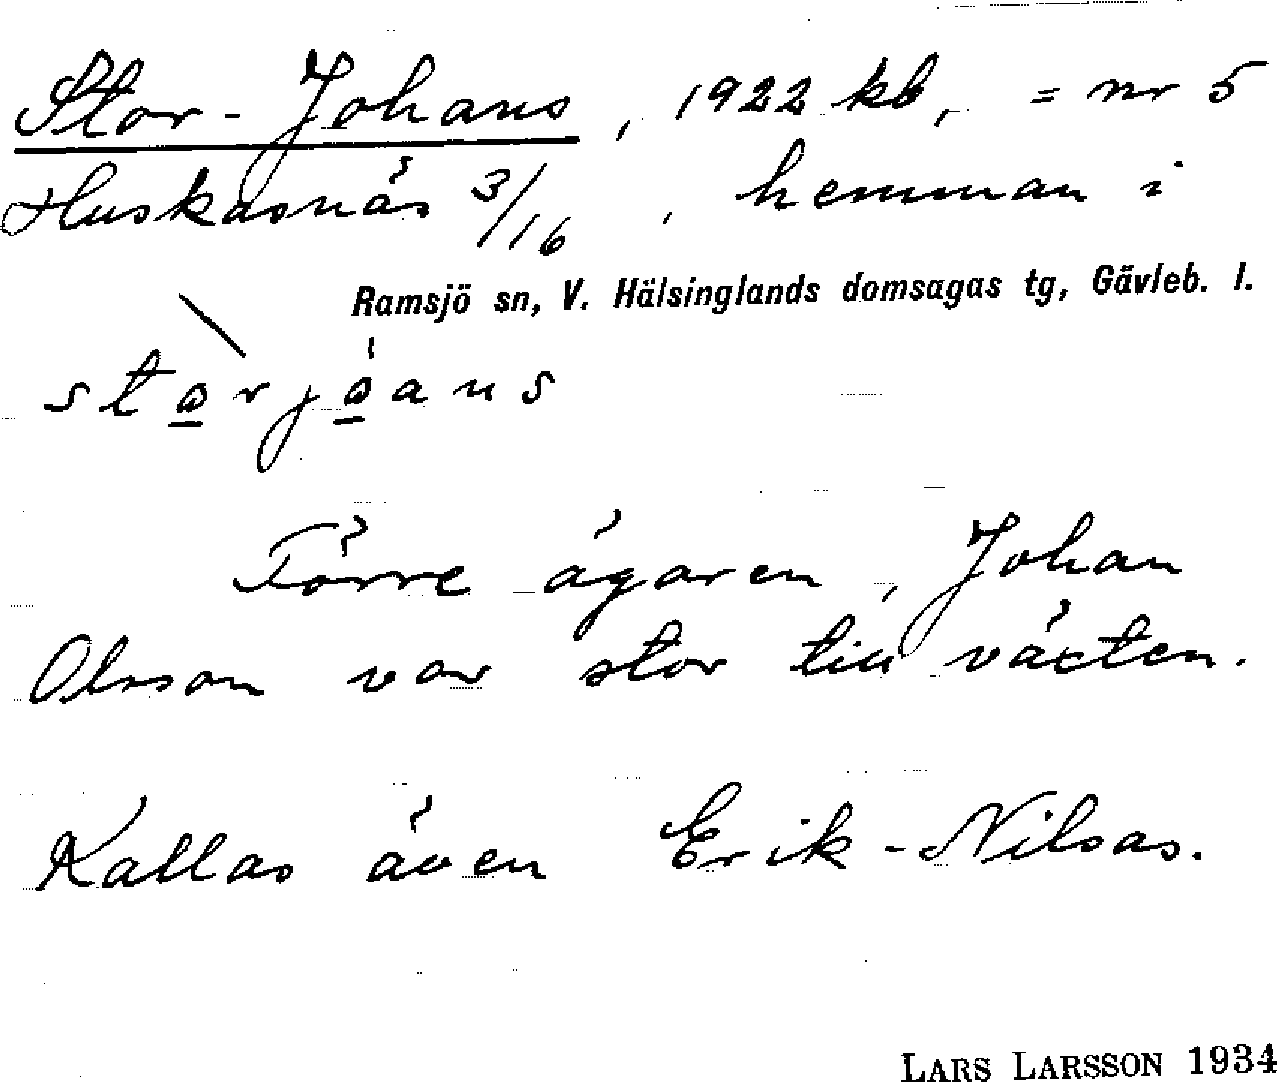 Stor-Johans, 1922 kb, = nr 5
Huskasnäs 3/16, hemman i
Ramsjö sn, V. Hälsinglands domsagas tg, Gävleb. l.
stо̲rjо̲ans
Förre ägaren, Johan
Olsson var stor till växten.
Kallas även Erik-Nilsas.
LARS LARSSON 1934